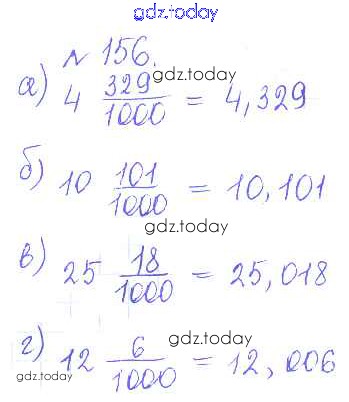 gdz.today
№ 156.
gdz.today
а) 4 329/1000 = 4,329
б) 10 101/1000 = 10,101
gdz.today
в) 25 18/1000 = 25,018
gdz.today
г) 12 6/1000 = 12,006
gdz.today
gdz.today